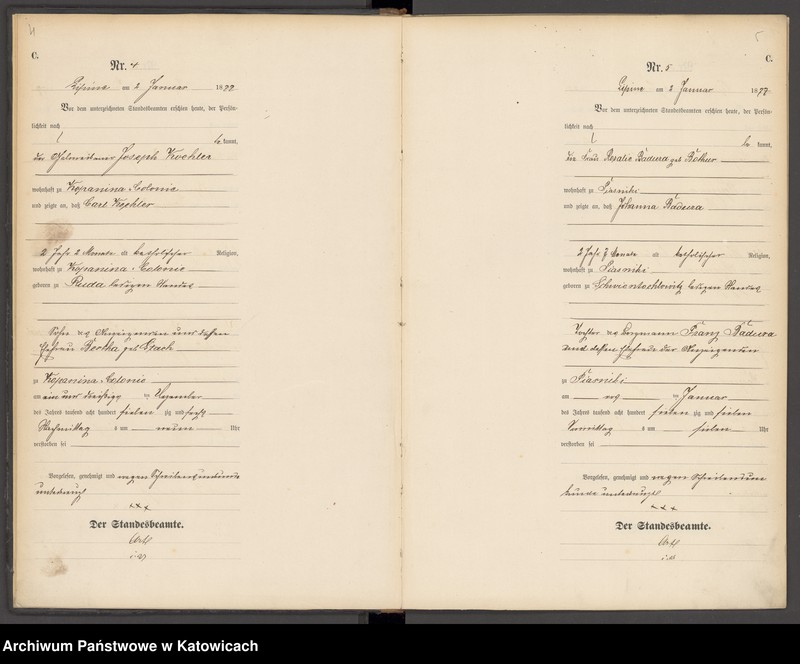 4
C.
Nr. 4
Lipine am 2 Januar 1877
Vor dem unterzeichneten Standesbeamten erschien heute, der Persön-
lichkeit nach
be kannt,
der Joseph Kochler
wohnhaft zu Kopanina Colonie
und zeigte an, daß Carl Kochler
2 Jahr 2 Monate alt katholischer Religion,
wohnhaft zu Kopanina Colonie
geboren zu Ruda ledigen Standes
Sohn des Anzeigenden und dessen
Ehefrau Bertha geb
zu Kopanina Colonie
am ein und dreißigsten Dezember
des Jahres tausend acht hundert sieben zig und sechs
Nachmittag s um neun Uhr
verstorben sei
Vorgelesen, genehmigt und wegen Schreibensunkunde
unterkreuzt
+++
Der Standesbeamte.
5
C.
Nr. 5
Lipine am 2 Januar 1877
Vor dem unterzeichneten Standesbeamten erschien heute, der Persön-
lichkeit nach
be kannt,
die Frau Rosalie Badura geb
wohnhaft zu Piasniki
und zeigte an, daß Johanna Badura
2 Jahr 7 Monate alt katholischer Religion,
wohnhaft zu Piasniki
geboren zu Schwientochlowitz ledigen Standes
Tochter des Bergmann Franz Badura
und dessen Ehefrau der Anzeigenden
zu Piasniki
am Januar
des Jahres tausend acht hundert sieben zig und sieben
Vormittag s um sieben Uhr
verstorben sei
Vorgelesen, genehmigt und wegen Schreibensun
kunde unterkreuzt
+++
Der Standesbeamte.
Archiwum Państwowe w Katowicach